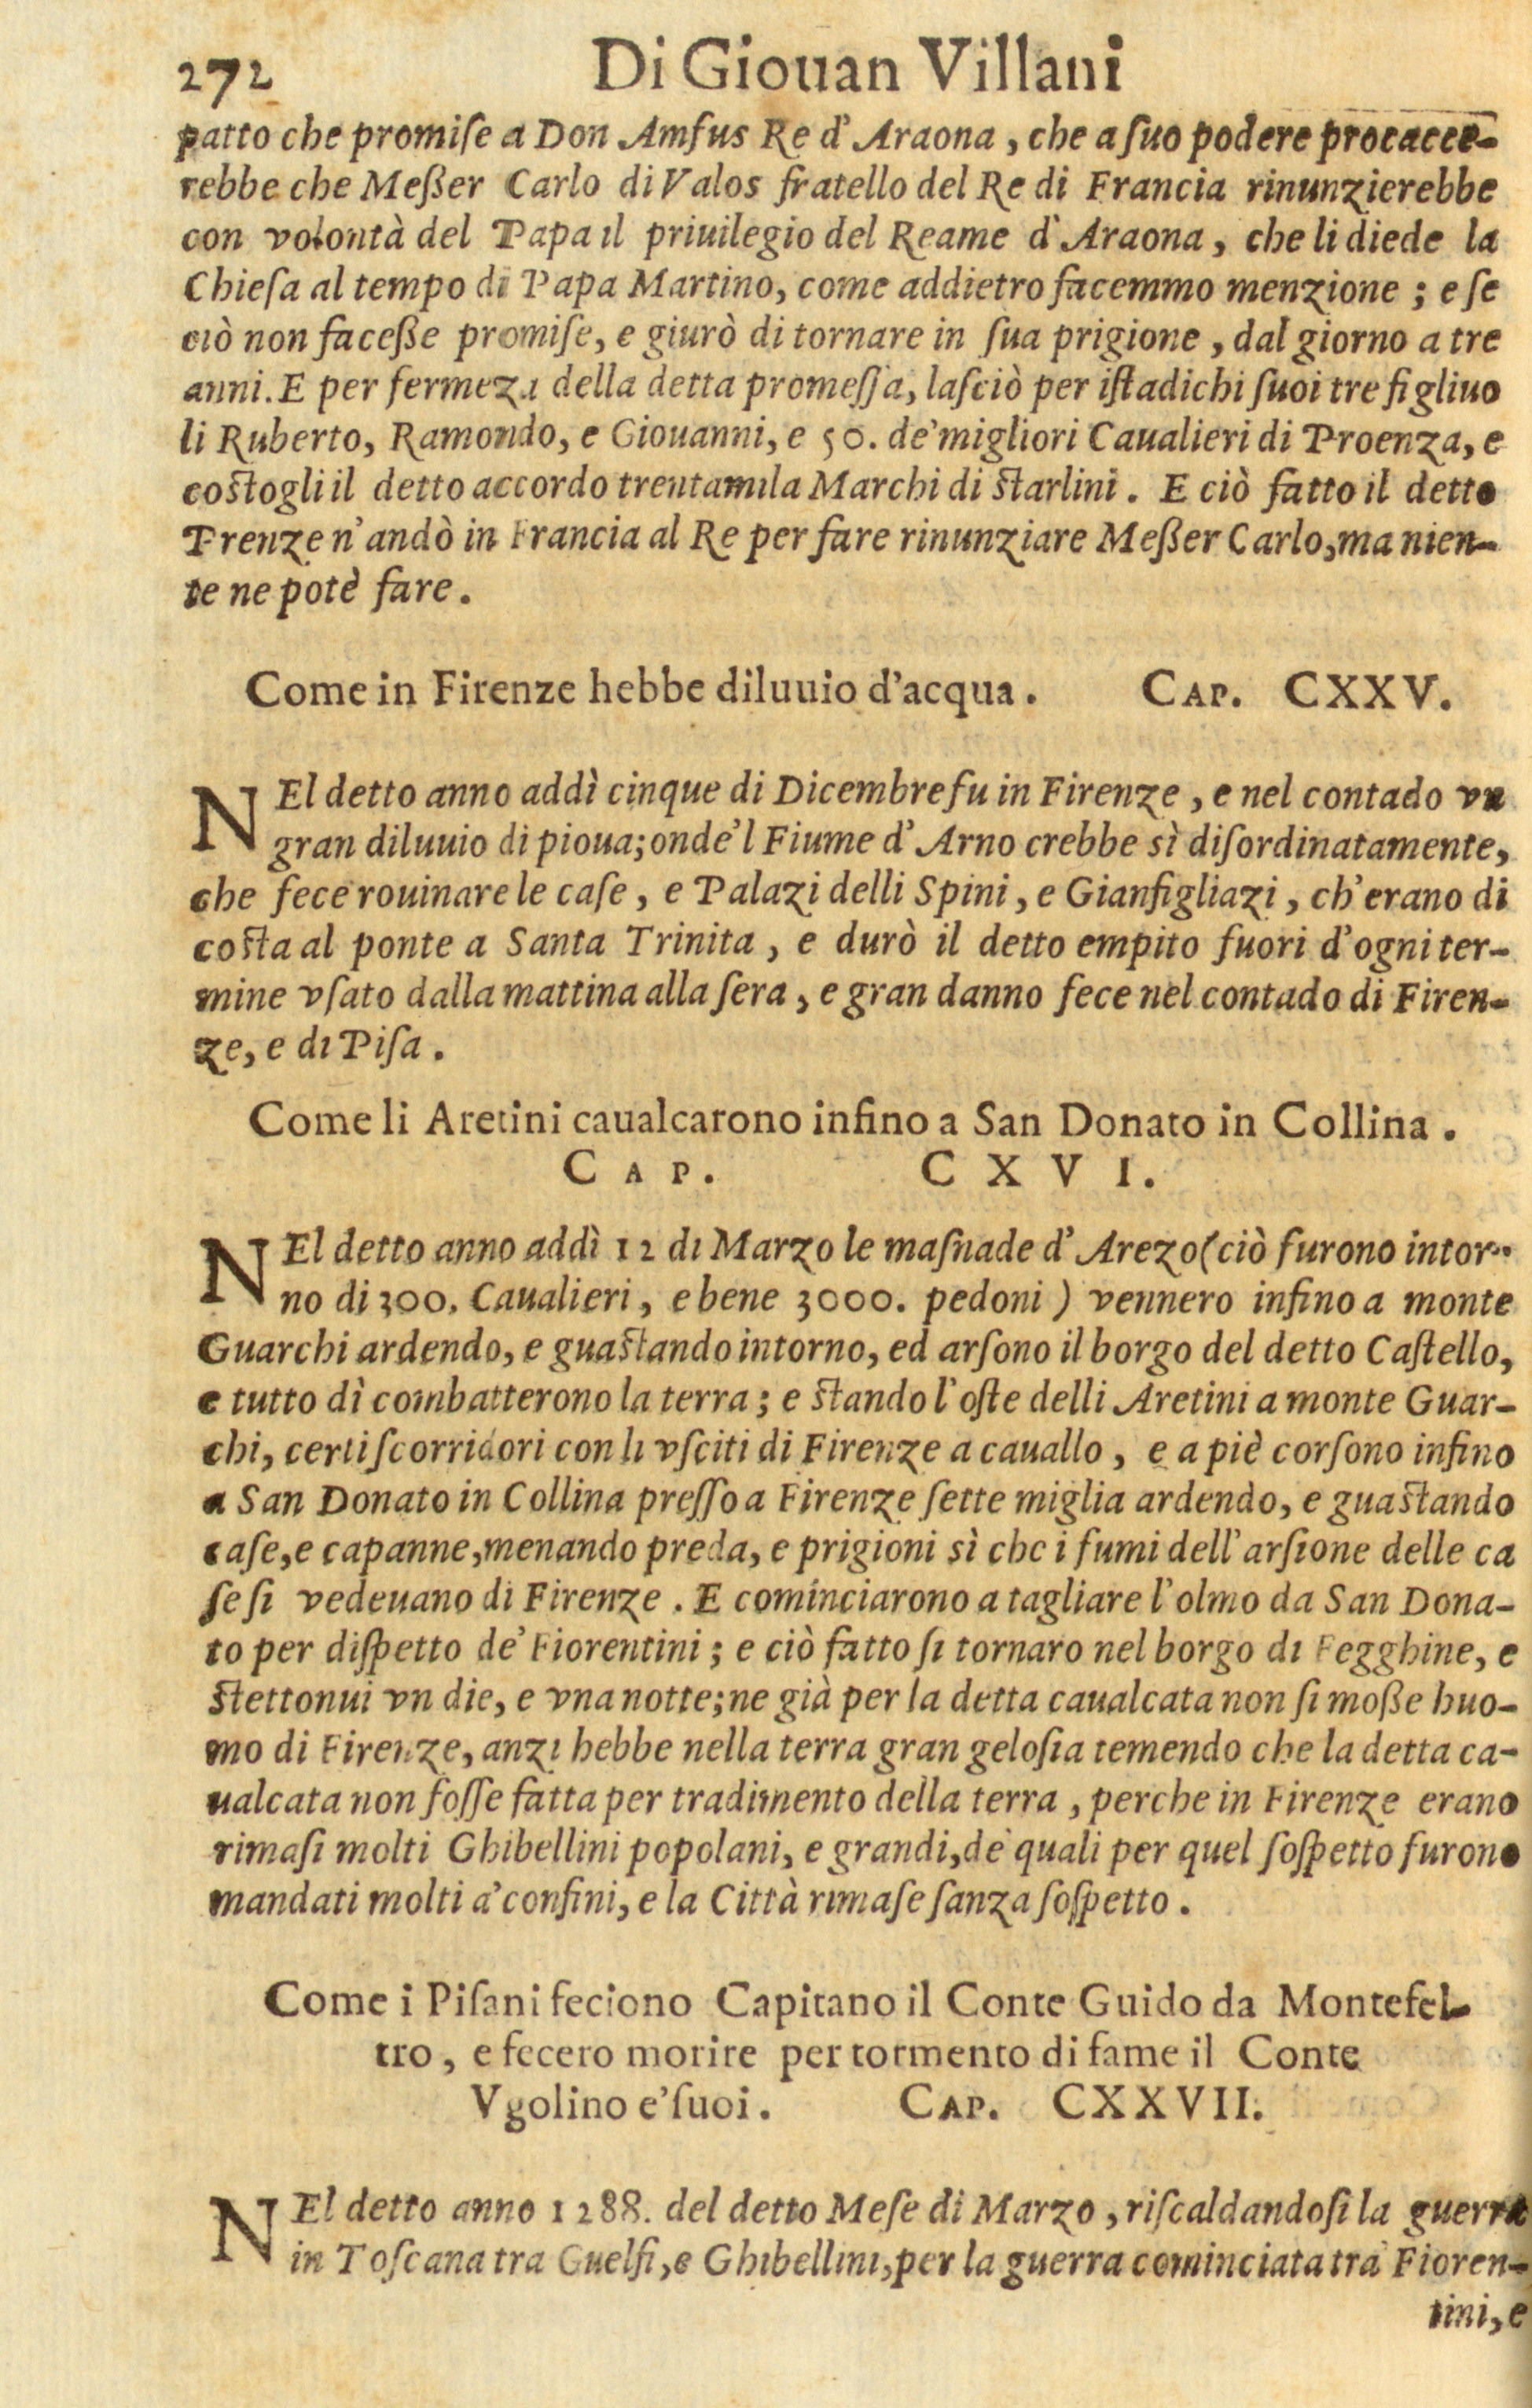 272 Di Giouan Villani
patto che promiſe a Don Amfus Re d'Araona, che a ſuo podere procacce-
rebbe che Meßer Carlo di Valos fratello del Re di Francia rinunzierebbe
con volontà del Papa il priuilegio del Reame d'Araona, che li diede la
Chieſa al tempo di Papa Martino, come addietro facemmo menzione; e ſe
ciò non faceße promiſe, e giurò di tornare in ſua prigione, dal giorno a tre
anni. E per fermeza della detta promeſſa, laſciò per iſtadichi ſuoi tre figliuo
li Ruberto, Ramondo, e Giouanni, e 50. de'migliori Caualieri di Proenza, e
coſtogli il detto accordo trentamila Marchi di ſtarlini. E ciò fatto il detto
Prenze n'andò in Francia al Re per fare rinunziare Meßer Carlo, ma nien-
te ne potè fare.
Come in Firenze hebbe diluuio d'acqua. CAP. CXXV.
NEl detto anno addì cinque di Dicembre fu in Firenze, e nel contado vn
gran diluuio di pioua; onde'l Fiume d'Arno crebbe sì diſordinatamente,
che fece rouinare le caſe, e Palazi delli Spini, e Gianfigliazi, ch'erano di
coſta al ponte a Santa Trinita, e durò il detto empito fuori d'ogni ter-
mine vſato dalla mattina alla ſera, e gran danno fece nel contado di Firen-
ze, e di Piſa.
Come li Aretini caualcarono infino a San Donato in Collina.
CAP. CXVI.
NEl detto anno addì 12 di Marzo le maſnade d'Arezo (ciò furono intor-
no di 300. Caualieri, e bene 3000. pedoni) vennero infino a monte
Guarchi ardendo, e guaſtando intorno, ed arſono il borgo del detto Caſtello,
e tutto dì combatterono la terra; e ſtando l'oſte delli Aretini a monte Guar-
chi, certi ſcorridori con li vſciti di Firenze a cauallo, e a piè corſono infino
a San Donato in Collina preſſo a Firenze ſette miglia ardendo, e guaſtando
caſe, e capanne, menando preda, e prigioni sì che i fumi dell'arſione delle ca
ſe ſi vedeuano di Firenze. E cominciarono a tagliare l'olmo da San Dona-
to per diſpetto de'Fiorentini; e ciò fatto ſi tornaro nel borgo di Fegghine, e
ſtettonui vn die, e vna notte; ne già per la detta caualcata non ſi moße huo-
mo di Firenze, anzi hebbe nella terra gran geloſia temendo che la detta ca-
ualcata non foſſe fatta per tradimento della terra, perche in Firenze erano
rimaſi molti Ghibellini popolani, e grandi, de'quali per quel ſoſpetto furono
mandati molti a'confini, e la Città rimaſe ſanza ſoſpetto.
Come i Piſani feciono Capitano il Conte Guido da Montefel-
tro, e fecero morire per tormento di fame il Conte
Vgolino e'ſuoi. CAP. CXXVII.
NEl detto anno 1288. del detto Meſe di Marzo, riſcaldandoſi la guerra
in Toſcana tra Guelfi, e Ghibellini, per la guerra cominciata tra Fioren-
tini, e